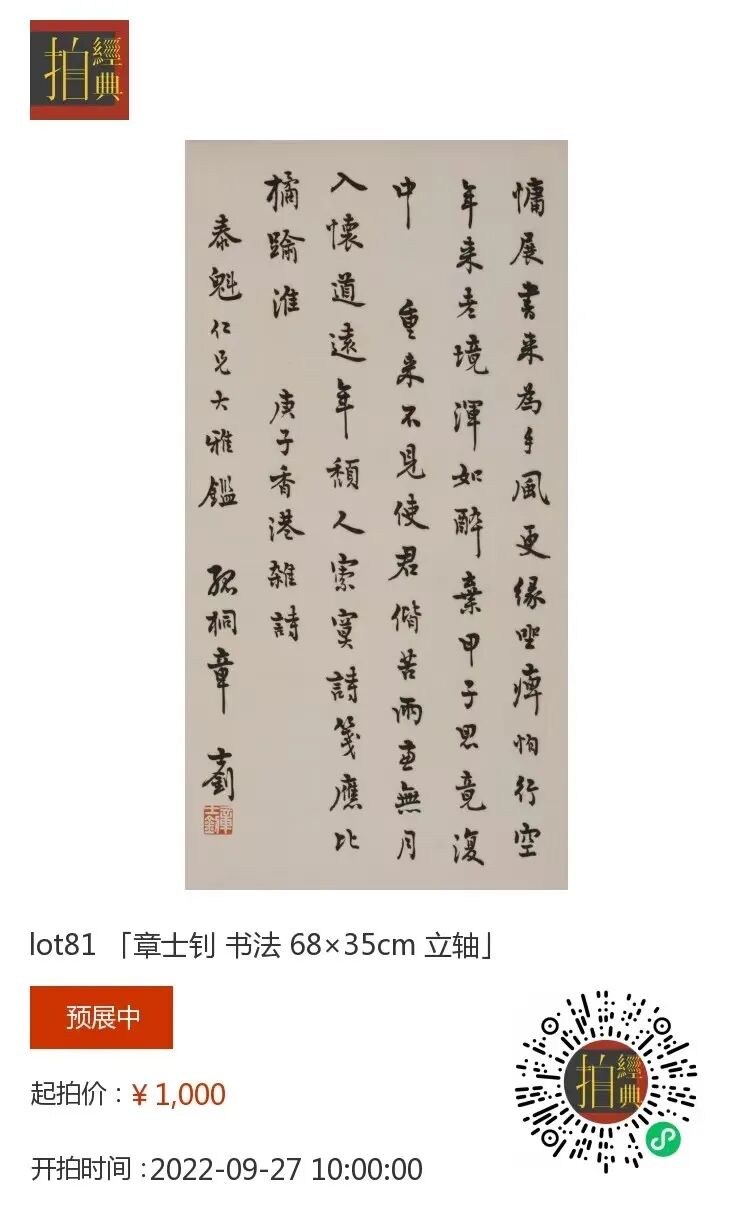 經典
拍
慵展書来為手風更緣坐痺怕行空
年来老境渾如醉棄甲于思竟復
中 重来不見使君偕苦雨無月
入懷道遠年頹人寂寞詩箋應比
橘踰淮 庚子香港雜詩
泰魁仁兄大雅鑑 孤桐章士釗
章士釗
lot81 「章士钊 书法 68×35cm 立轴」
预展中
起拍价：¥ 1,000
开拍时间：2022-09-27 10:00:00
經典
拍